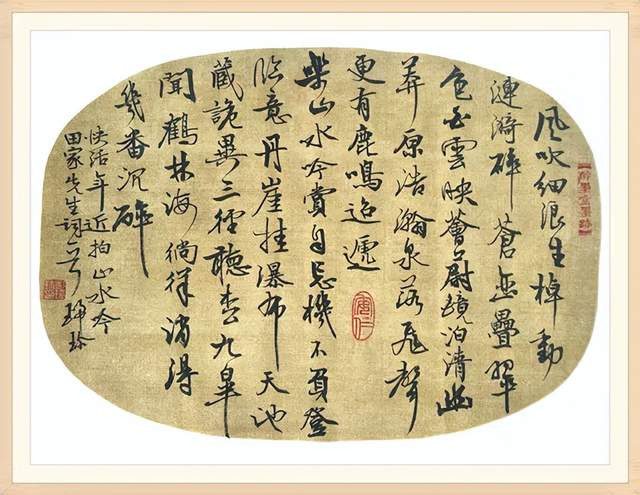 風吹細浪生棹動
漣漪碎蒼巒疊翠
色白雲映薈蔚鏡泊清幽
莽原浩瀚泉落飛聲
更有鹿鳴迢遞
樂山水吟賞自忘機不負登
臨意丹崖挂瀑布天池
藏詭異三徑聽九皋
聞鶴林海徜徉消得
幾番沉醉
快活年近拍山水吟
田家先生詞一首